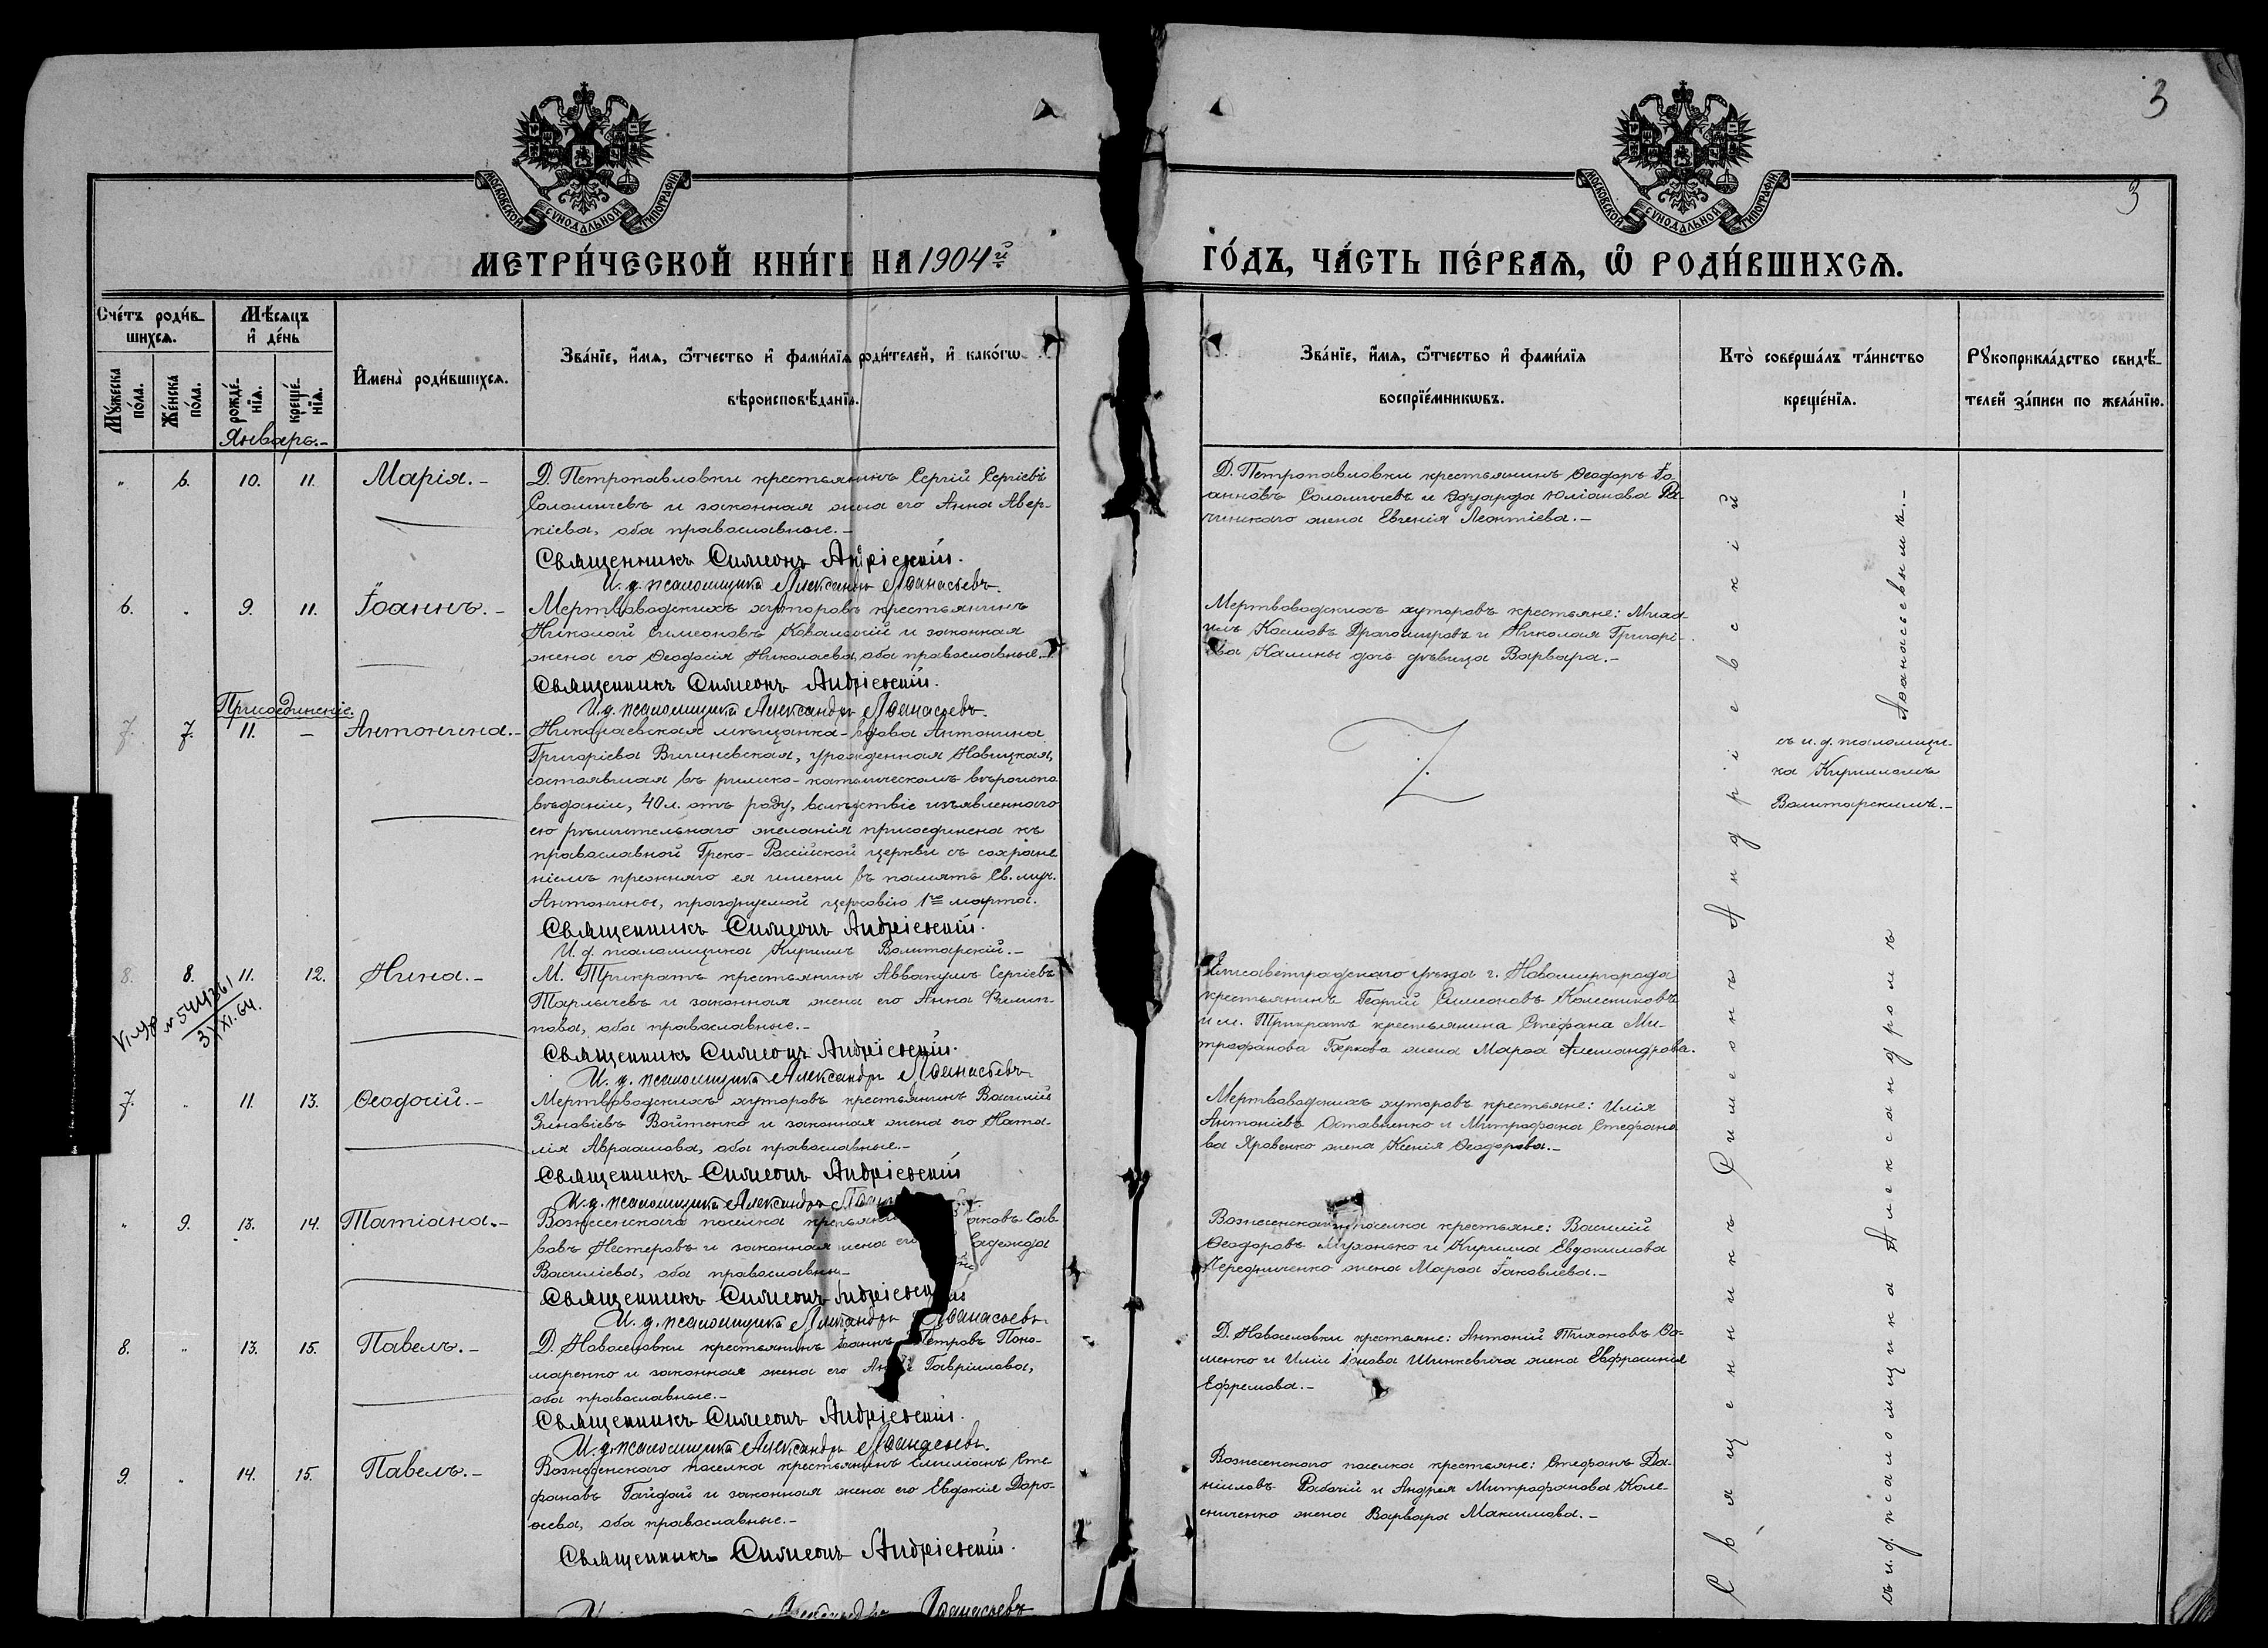 3
МОСКОВСКОЙ СѴНОДАЛЬНОЙ ТИПОГРАФІИ
МОСКОВСКОЙ СѴНОДАЛЬНОЙ ТИПОГРАФІИ
3
МЕТРИ́ЧЕСКОЙ КНИ́ГИ НА 1904й
ГО́ДЪ, ЧА́СТЬ ПЕ́РВАѦ, Ѡ РОДИ́ВШИХСѦ.
Сче́тъ роди́в-
шихсѧ.
Мѹ́жеска по́ла.
Же́нска по́ла.
Мѣ́сѧцъ
и҆ де́нь
рожде́-
нїѧ.
креще́-
нїѧ.
И҆мена̀ роди́вшихсѧ.
Зва́нїе, и҆́мѧ, ѻ҆́тчество и҆ фами́лїѧ роди́телей, и҆ како́гѡ
вѣроисповѣ́данїѧ.
Зва́нїе, и҆́мѧ, ѻ҆́тчество и҆ фами́лїѧ
воспрїе́мникѡвъ.
Кто̀ соверша́лъ та́инство
креще́нїѧ.
Рѹкоприкла́дство свидѣ́-
телей за́писи по жела́нїю.
Январь.-
" 6. 10. 11. Марія.-
Д. Петропавловки крестьянинъ Сергій Сергіевъ
Соломичевъ и законная жена его Анна Авер-
кіева, оба православные.-
Священникъ Симеонъ Андріевскій.
И. д. псаломщика Александръ Аѳанасьевъ.
Д. Петропавловки крестьянинъ Ѳеодоръ Іо-
анновъ Соломичевъ и Эдуарда Юліанова
жена Евгенія Леонтіева.-
6. " 9. 11. Іоаннъ.-
Мертвоводскихъ хуторовъ крестьянинъ
Николай Симеоновъ Ковальскій и законная
жена его Ѳеодосія Николаева, оба православные.-
Священникъ Симеонъ Андріевскій.
И. д. псаломщика Александръ Аѳанасьевъ.
Мертвоводскихъ хуторовъ крестьяне: Миха-
илъ Космовъ Драгомировъ и Николая Григорі-
ева Калины дочь дѣвица Варвара.-
Присоединеніе.
7. 7. 11. — Антонина.-
Николаевская мѣщанка-вдова Антонина
Григоріева Вишневская, урожденная Новицкая,
состоявшая въ римско-католическомъ вѣроиспо-
вѣданіи, 40 л. отъ роду, вслѣдствіе изъявленнаго
ею рѣшительнаго желанія присоединена къ
православной Греко-Россійской церкви съ сохране-
ніемъ прежняго ея имени въ память Св. муч.
Антонины, празднуемой церковію 1го марта.
Священникъ Симеонъ Андріевскій.
И. д. псаломщика Кириллъ Волитарскій.-
съ и. д. псаломщи-
ка Кирилломъ
Волитарскимъ.-
8. 8. 11. 12. Нина.-
М. Трикратъ крестьянинъ Аввакумъ Сергіевъ
Тарлычевъ и законная жена его Анна Филип-
пова, оба православные.-
Священникъ Симеонъ Андріевскій.
И. д. псаломщика Александръ Аѳанасьевъ
Елисаветградскаго уѣзда г. Новомиргорода
крестьянинъ Георгій Симеоновъ Колесниковъ
и м. Трикратъ крестьянина Стефана Ми-
трофанова Беркова жена Марѳа Александрова.
№ 544361
XI.64.
7. " 11. 13. Ѳеодосій.-
Мертвоводскихъ хуторовъ крестьянинъ Василій
Зиновіевъ Войтенко и законная жена его Ната-
лія Авраамова, оба православные.-
Священникъ Симеонъ Андріевскій
И. д. псаломщика Александръ
Мертвоводскихъ хуторовъ крестьяне: Илія
Антоніевъ Оставненко и Митрофана Стефано-
ва Яровенко жена Ксенія Ѳеодорова.-
" 9. 13. 14. Татіана.-
Вознесенскаго поселка Сав-
вовъ Нестеровъ и законная жена его Надежда
Василіева, оба православны
Священникъ Симеонъ Андріевскій
И. д. псаломщика Александръ Аѳанасьевъ.
Вознесенскаго поселка крестьяне: Василій
Ѳеодоровъ Мухонько и Кирилла Евдокимова
Чередниченко жена Марѳа Іаковлева.-
8. " 13. 15. Павелъ.-
Д. Новоселовки крестьянинъ Іоаннъ Петровъ Поно-
маренко и законная жена его Анна Гавріилова,
оба православные.-
Священникъ Симеонъ Андріевскій.
И. д. псаломщика Александръ Аѳанасьевъ.
Д. Новоселовки крестьяне: Антоній Тихоновъ Ѳо-
менко и Иліи Іонова Шинкевича жена Евфросинія
Ефремова.-
9. " 14. 15. Павелъ.-
Вознесенскаго поселка крестьянинъ Емиліанъ Сте-
фановъ Гайдай и законная жена его Евдокія Доро-
ѳеева, оба православные.-
Священникъ Симеонъ Андріевскій.
Александръ Аѳанасьевъ
Вознесенскаго поселка крестьяне: Стефанъ Да-
ніиловъ Рабочій и Андрея Митрофанова Коле-
сниченко жена Варвара Максимова.-
Священникъ Симеонъ Андріевскій
съ и. д. псаломщика Александромъ Аѳанасьевымъ.-